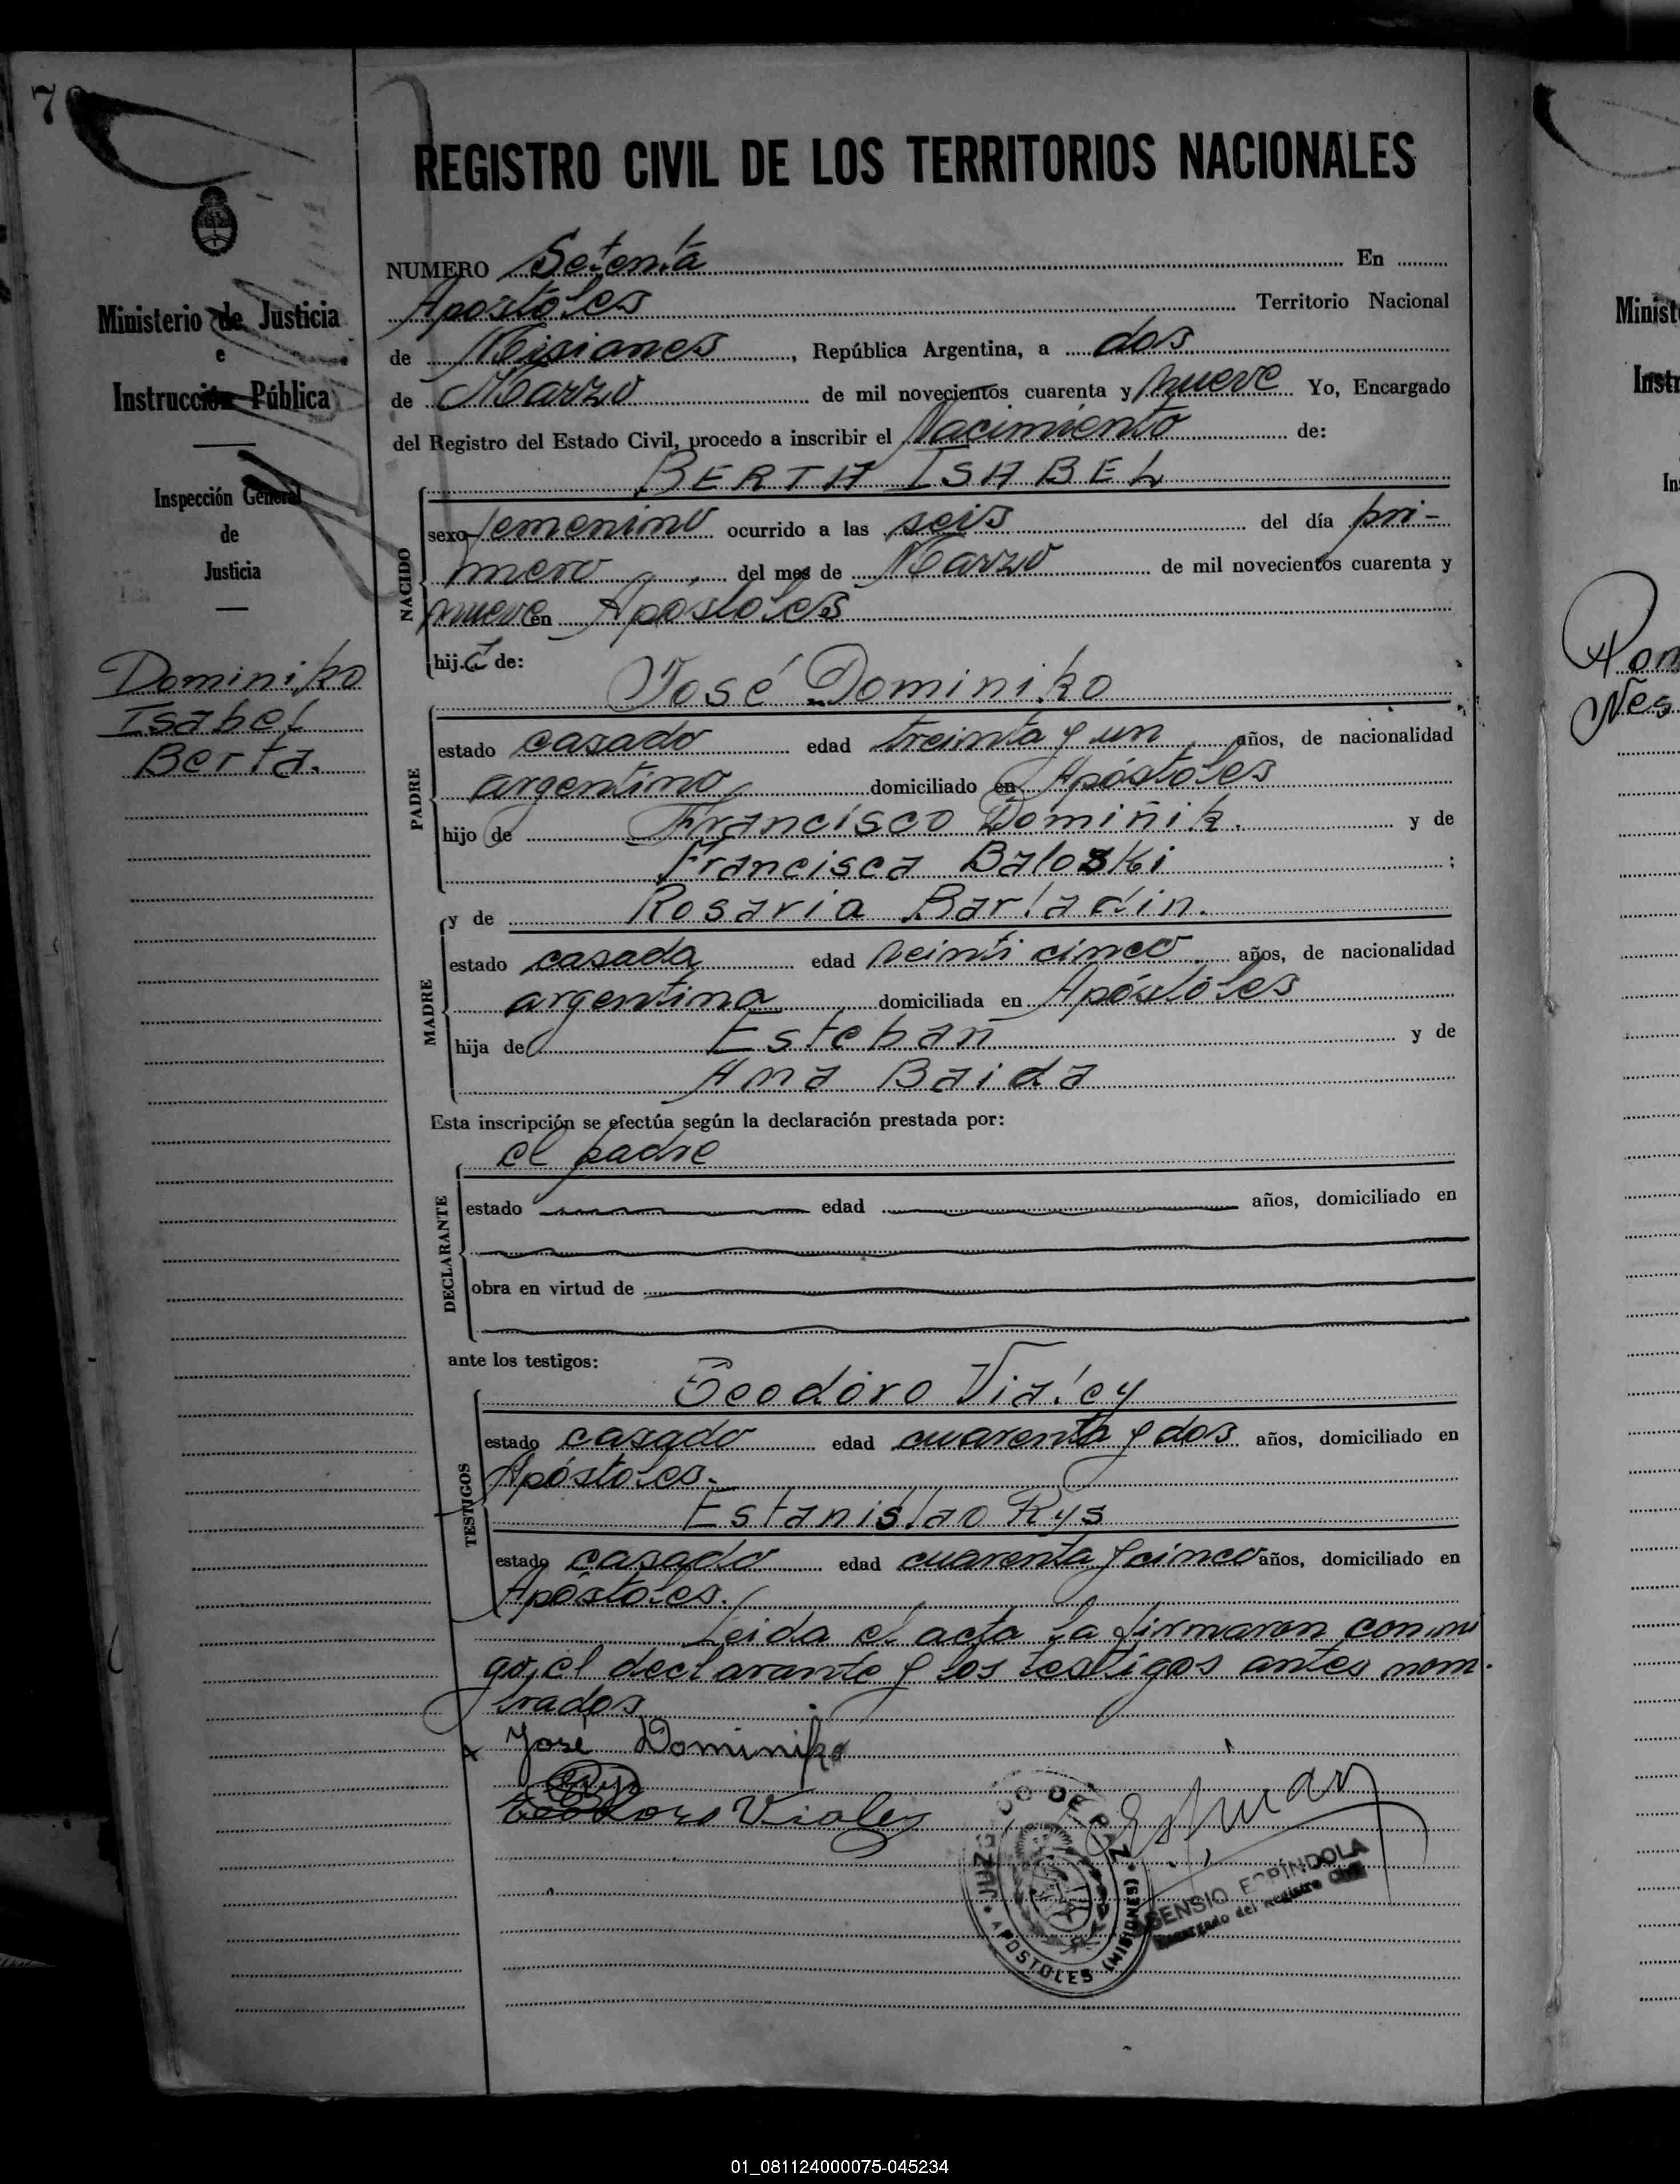 70
REGISTRO CIVIL DE LOS TERRITORIOS NACIONALES
Ministerio de Justicia
e
Instrucción Pública
Inspección General
de
Justicia
Dominiko
Isabel
Berta.
NUMERO Setenta En
Apostoles Territorio Nacional
de Misiones, República Argentina, a dos
de Marzo de mil novecientos cuarenta y nueve Yo, Encargado
del Registro del Estado Civil, procedo a inscribir el Nacimiento de:
BERTA ISABEL
NACIDO
sexo femenino ocurrido a las seis del día pri-
mero del mes de Marzo de mil novecientos cuarenta y
nueve en Apóstoles
hija de:
José Dominiko
PADRE
estado casado edad treinta y un años, de nacionalidad
argentino domiciliado en Apóstoles
hijo de Francisco Dominik. y de
Francisca Baloski ;
y de Rosaria
MADRE
estado casada edad veinti cinco años, de nacionalidad
argentina domiciliada en Apóstoles
hija de Esteban y de
Ana Baida
Esta inscripción se efectúa según la declaración prestada por:
el padre
DECLARANTE
estado edad años, domiciliado en
obra en virtud de
ante los testigos:
Teodoro Vialey
TESTIGOS
estado casado edad cuarenta y dos años, domiciliado en
Apóstoles.
Estanislao Rys
estado casado edad cuarenta y cinco años, domiciliado en
Apóstoles.
Leida el acta la firmaron conmi
go, el declarante y los testigos antes nom
brados
José Dominiko
Teodoro Vialey
JUZGADO DE PAZ
APOSTOLES (MISIONES)
ASENSIO ESPÍNDOLA
Encargado del Registro Civil
Minist
Instr
In
01_081124000075-045234